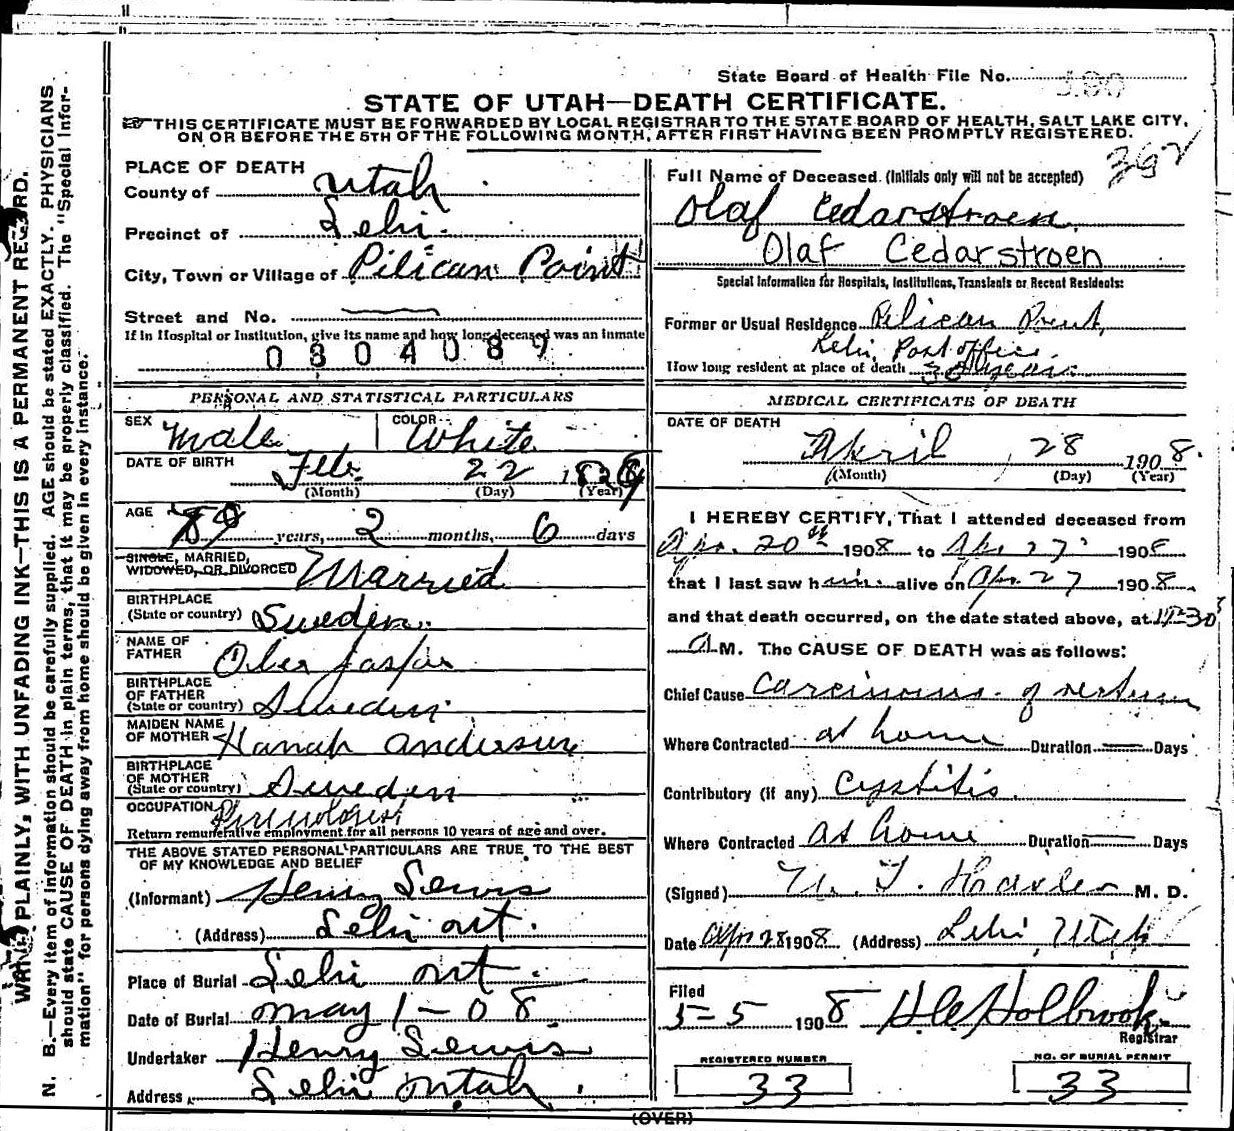 State Board of Health File No. 390
STATE OF UTAH—DEATH CERTIFICATE.
THIS CERTIFICATE MUST BE FORWARDED BY LOCAL REGISTRAR TO THE STATE BOARD OF HEALTH, SALT LAKE CITY,
ON OR BEFORE THE 5TH OF THE FOLLOWING MONTH, AFTER FIRST HAVING BEEN PROMPTLY REGISTERED.
392
PLACE OF DEATH
County of Utah
Precinct of Lehi
City, Town or Village of Pilican Point
Street and No.
If in Hospital or Institution, give its name and how long deceased was an inmate
0304089
PERSONAL AND STATISTICAL PARTICULARS
SEX Male COLOR White
DATE OF BIRTH Feb 22 1829
(Month) (Day) (Year)
AGE 79 years, 2 months, 6 days
SINGLE, MARRIED,
WIDOWED, OR DIVORCED Married
BIRTHPLACE
(State or country) Sweden
NAME OF
FATHER
BIRTHPLACE
OF FATHER
(State or country) Sweden
MAIDEN NAME
OF MOTHER Hanah Anderson
BIRTHPLACE
OF MOTHER
(State or country) Sweden
OCCUPATION
Return remunerative employment for all persons 10 years of age and over.
THE ABOVE STATED PERSONAL PARTICULARS ARE TRUE TO THE BEST
OF MY KNOWLEDGE AND BELIEF
(Informant) Henry Lewis
(Address) Lehi Ut.
Place of Burial Lehi Ut.
Date of Burial May 1-08
Undertaker Henry Lewis
Address Lehi Utah
Full Name of Deceased (Initials only will not be accepted)
Olaf Cedarstroen
Olaf Cedarstroen
Special Information for Hospitals, Institutions, Transients or Recent Residents:
Former or Usual Residence Pelican Point,
Lehi Post office.
How long resident at place of death 30 years
MEDICAL CERTIFICATE OF DEATH
DATE OF DEATH
April 28 1908.
(Month) (Day) (Year)
I HEREBY CERTIFY, That I attended deceased from
Apr. 20th 1908 to Apr 27 1908
that I last saw him alive on Apr. 27 1908
and that death occurred, on the date stated above, at 30
A M. The CAUSE OF DEATH was as follows:
Chief Cause Carcinoma of rectum
Where Contracted at home Duration Days
Contributory (if any) Cystitis.
Where Contracted at home Duration Days
(Signed) M. D.
Date Apr 28 1908 (Address) Lehi, Utah
Filed
5-5 1908 Holbrook
Registrar
REGISTERED NUMBER
33
NO. OF BURIAL PERMIT
33
(OVER)
WRITE PLAINLY, WITH UNFADING INK—THIS IS A PERMANENT RECORD.
N. B.—Every item of information should be carefully supplied. AGE should be stated EXACTLY. PHYSICIANS
should state CAUSE OF DEATH in plain terms, that it may be properly classified. The "Special Infor-
mation" for persons dying away from home should be given in every instance.